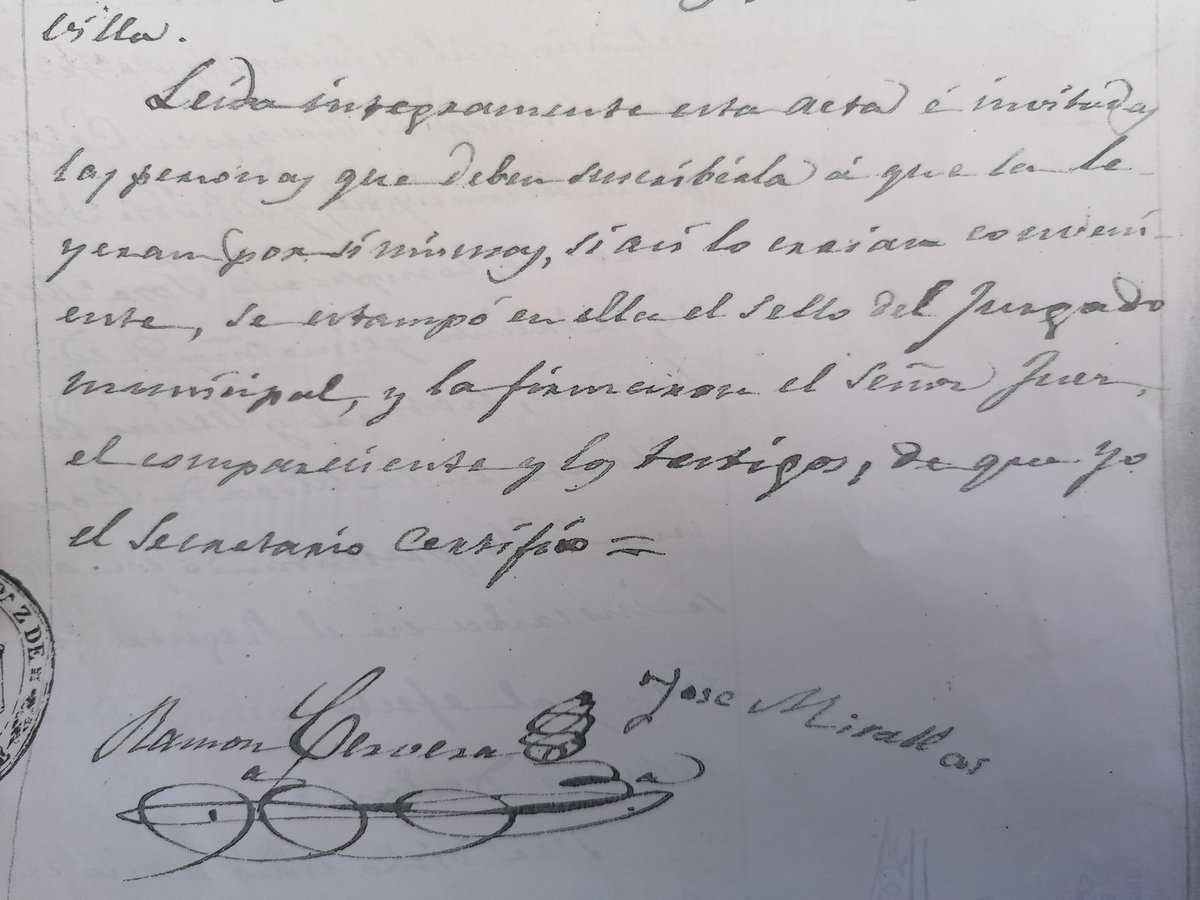 villa.
Leida integramente esta acta é invitadas
las personas que deben suscribirla á que la le-
yeran por sí mismas, si asi lo creian conveni-
ente, se estampó en ella el sello del Juzgado
municipal, y la firmaron el Señor Juez,
el compareciente y los testigos, de que yo
el Secretario Certifico =
Z DE
Ramon Cervera
Jose Mirallas